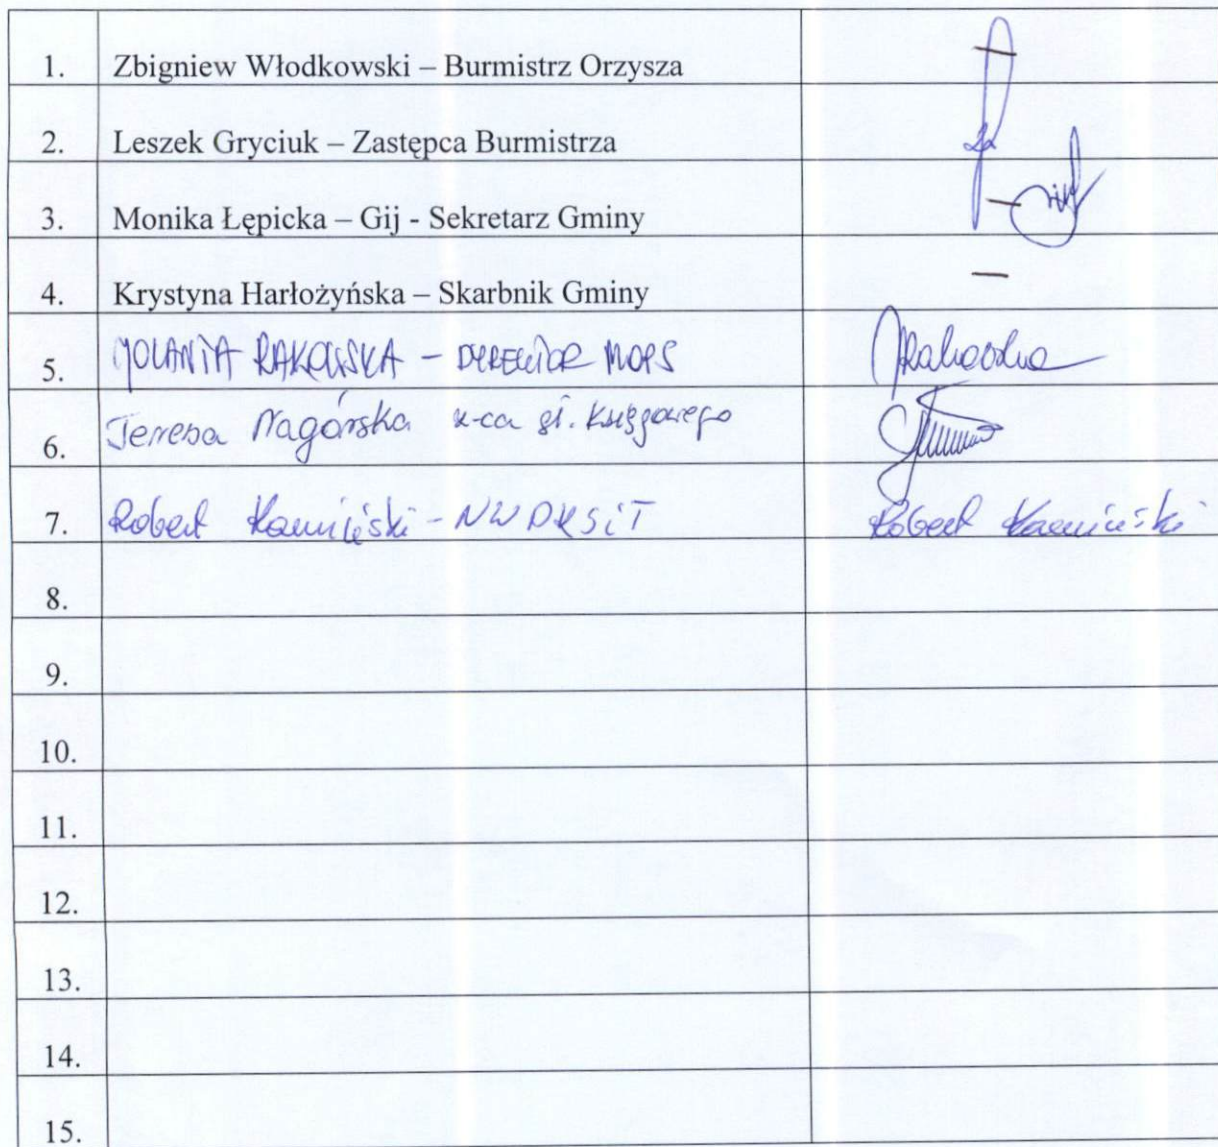 1. Zbigniew Włodkowski – Burmistrz Orzysza –
2. Leszek Gryciuk – Zastępca Burmistrza
3. Monika Łępicka – Gij - Sekretarz Gminy –
4. Krystyna Harłożyńska – Skarbnik Gminy –
5. JOLANTA RAKOWSKA – DYREKTOR MOPS JRakowska
6. Teresa Nagórska z-ca gł. księgowego
7. Robert Kamiński - NWDKSiT Robert Kamiński
8.
9.
10.
11.
12.
13.
14.
15.